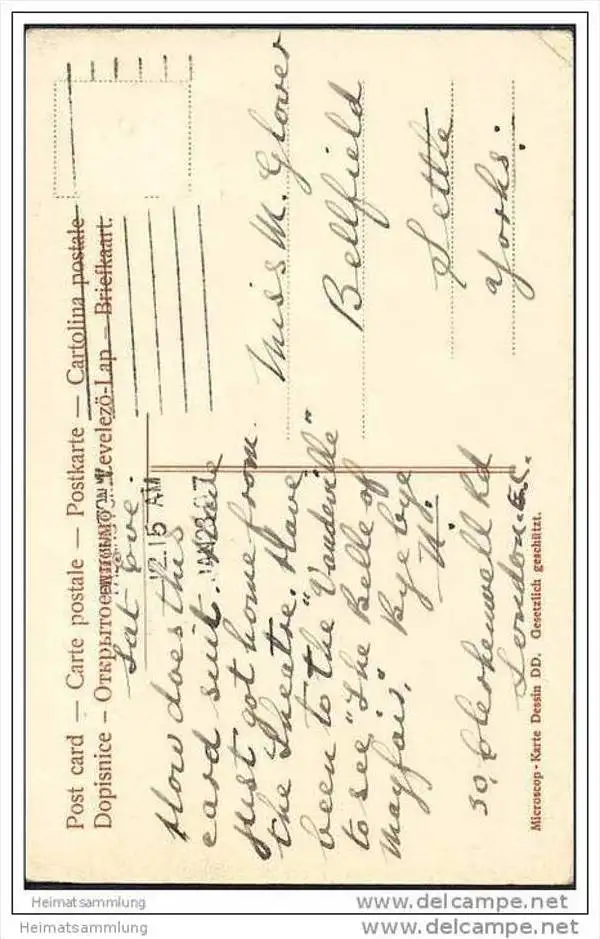 Post card — Carte postale — Postkarte — Cartolina postale
Dopisnice — Открытое письмо — Levelező-Lap — Briefkaart.
Sat Eve.
12.15 AM
How does this
card suit.
just got home from
the Theatre. Have
been to the "Vaudeville"
to see "The Belle of
Mayfair." Bye bye
30, Clerkenwell Rd
London E.C.
Miss M. Glover
Bellfield
Settle
Yorks.
Microscop-Karte Dessin DD. Gesetzlich geschützt.
Heimatsammlung
ansichtskarten-center.de
Heimatsammlung
ansichtskarten-center.de